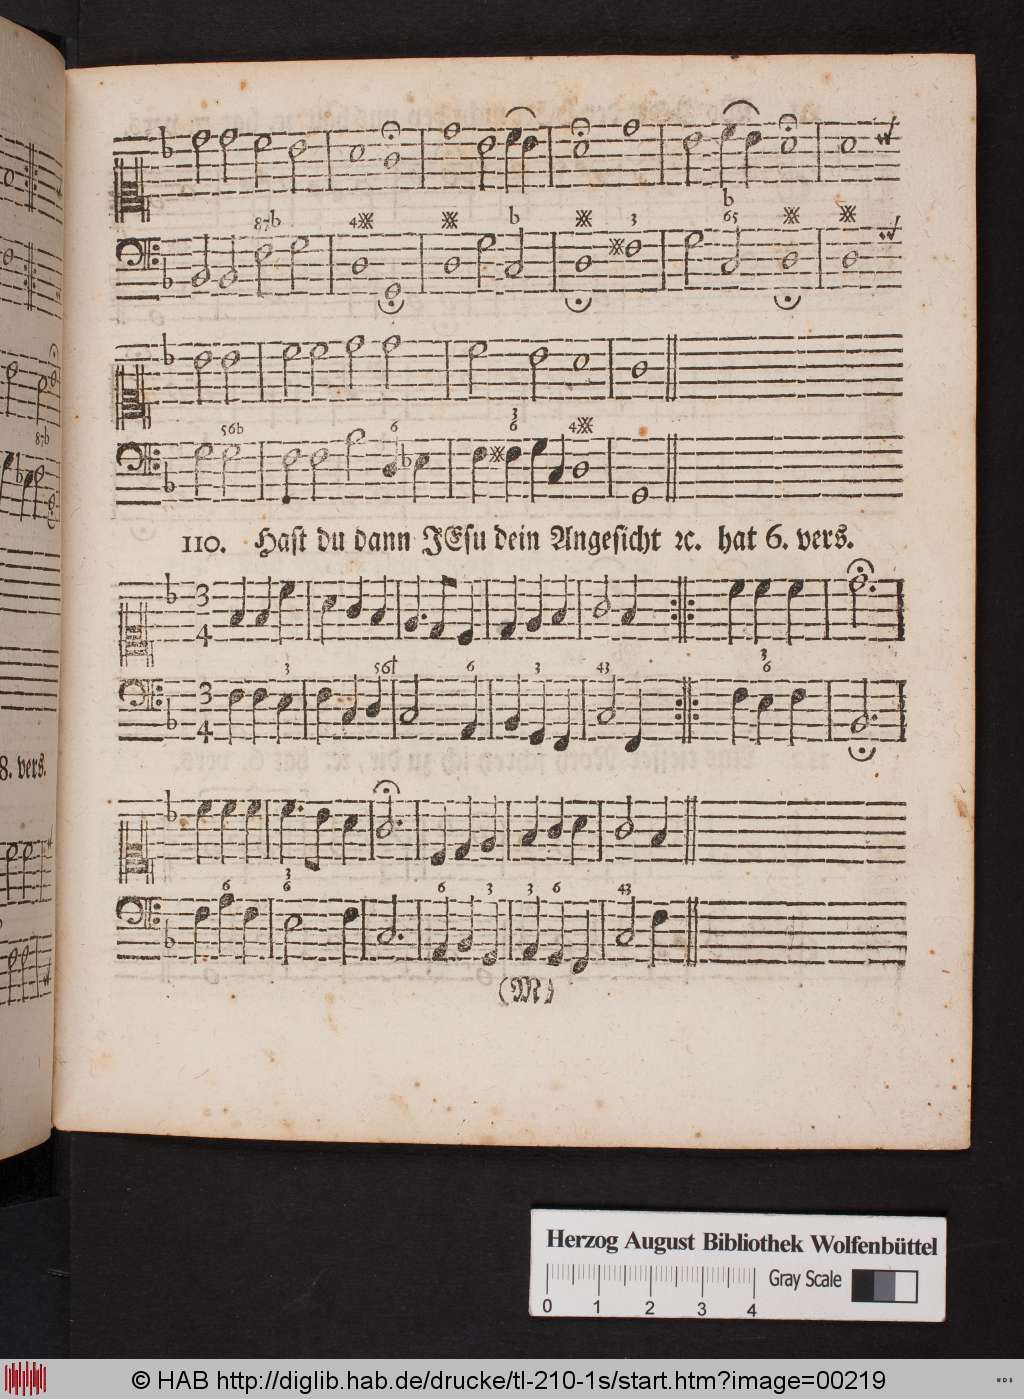 87b 4 b 3 b 65
56b 6 3 6 4
110. Hast du dann JEsu dein Angesicht ꝛc. hat 6. vers.
3 4
3 56† 6 3 43 3 6
3 4
8. vers.
6 3 6 6 3 3 6 43
(M)
87b
Herzog August Bibliothek Wolfenbüttel
Gray Scale
0 1 2 3 4
© HAB http://diglib.hab.de/drucke/tl-210-1s/start.htm?image=00219